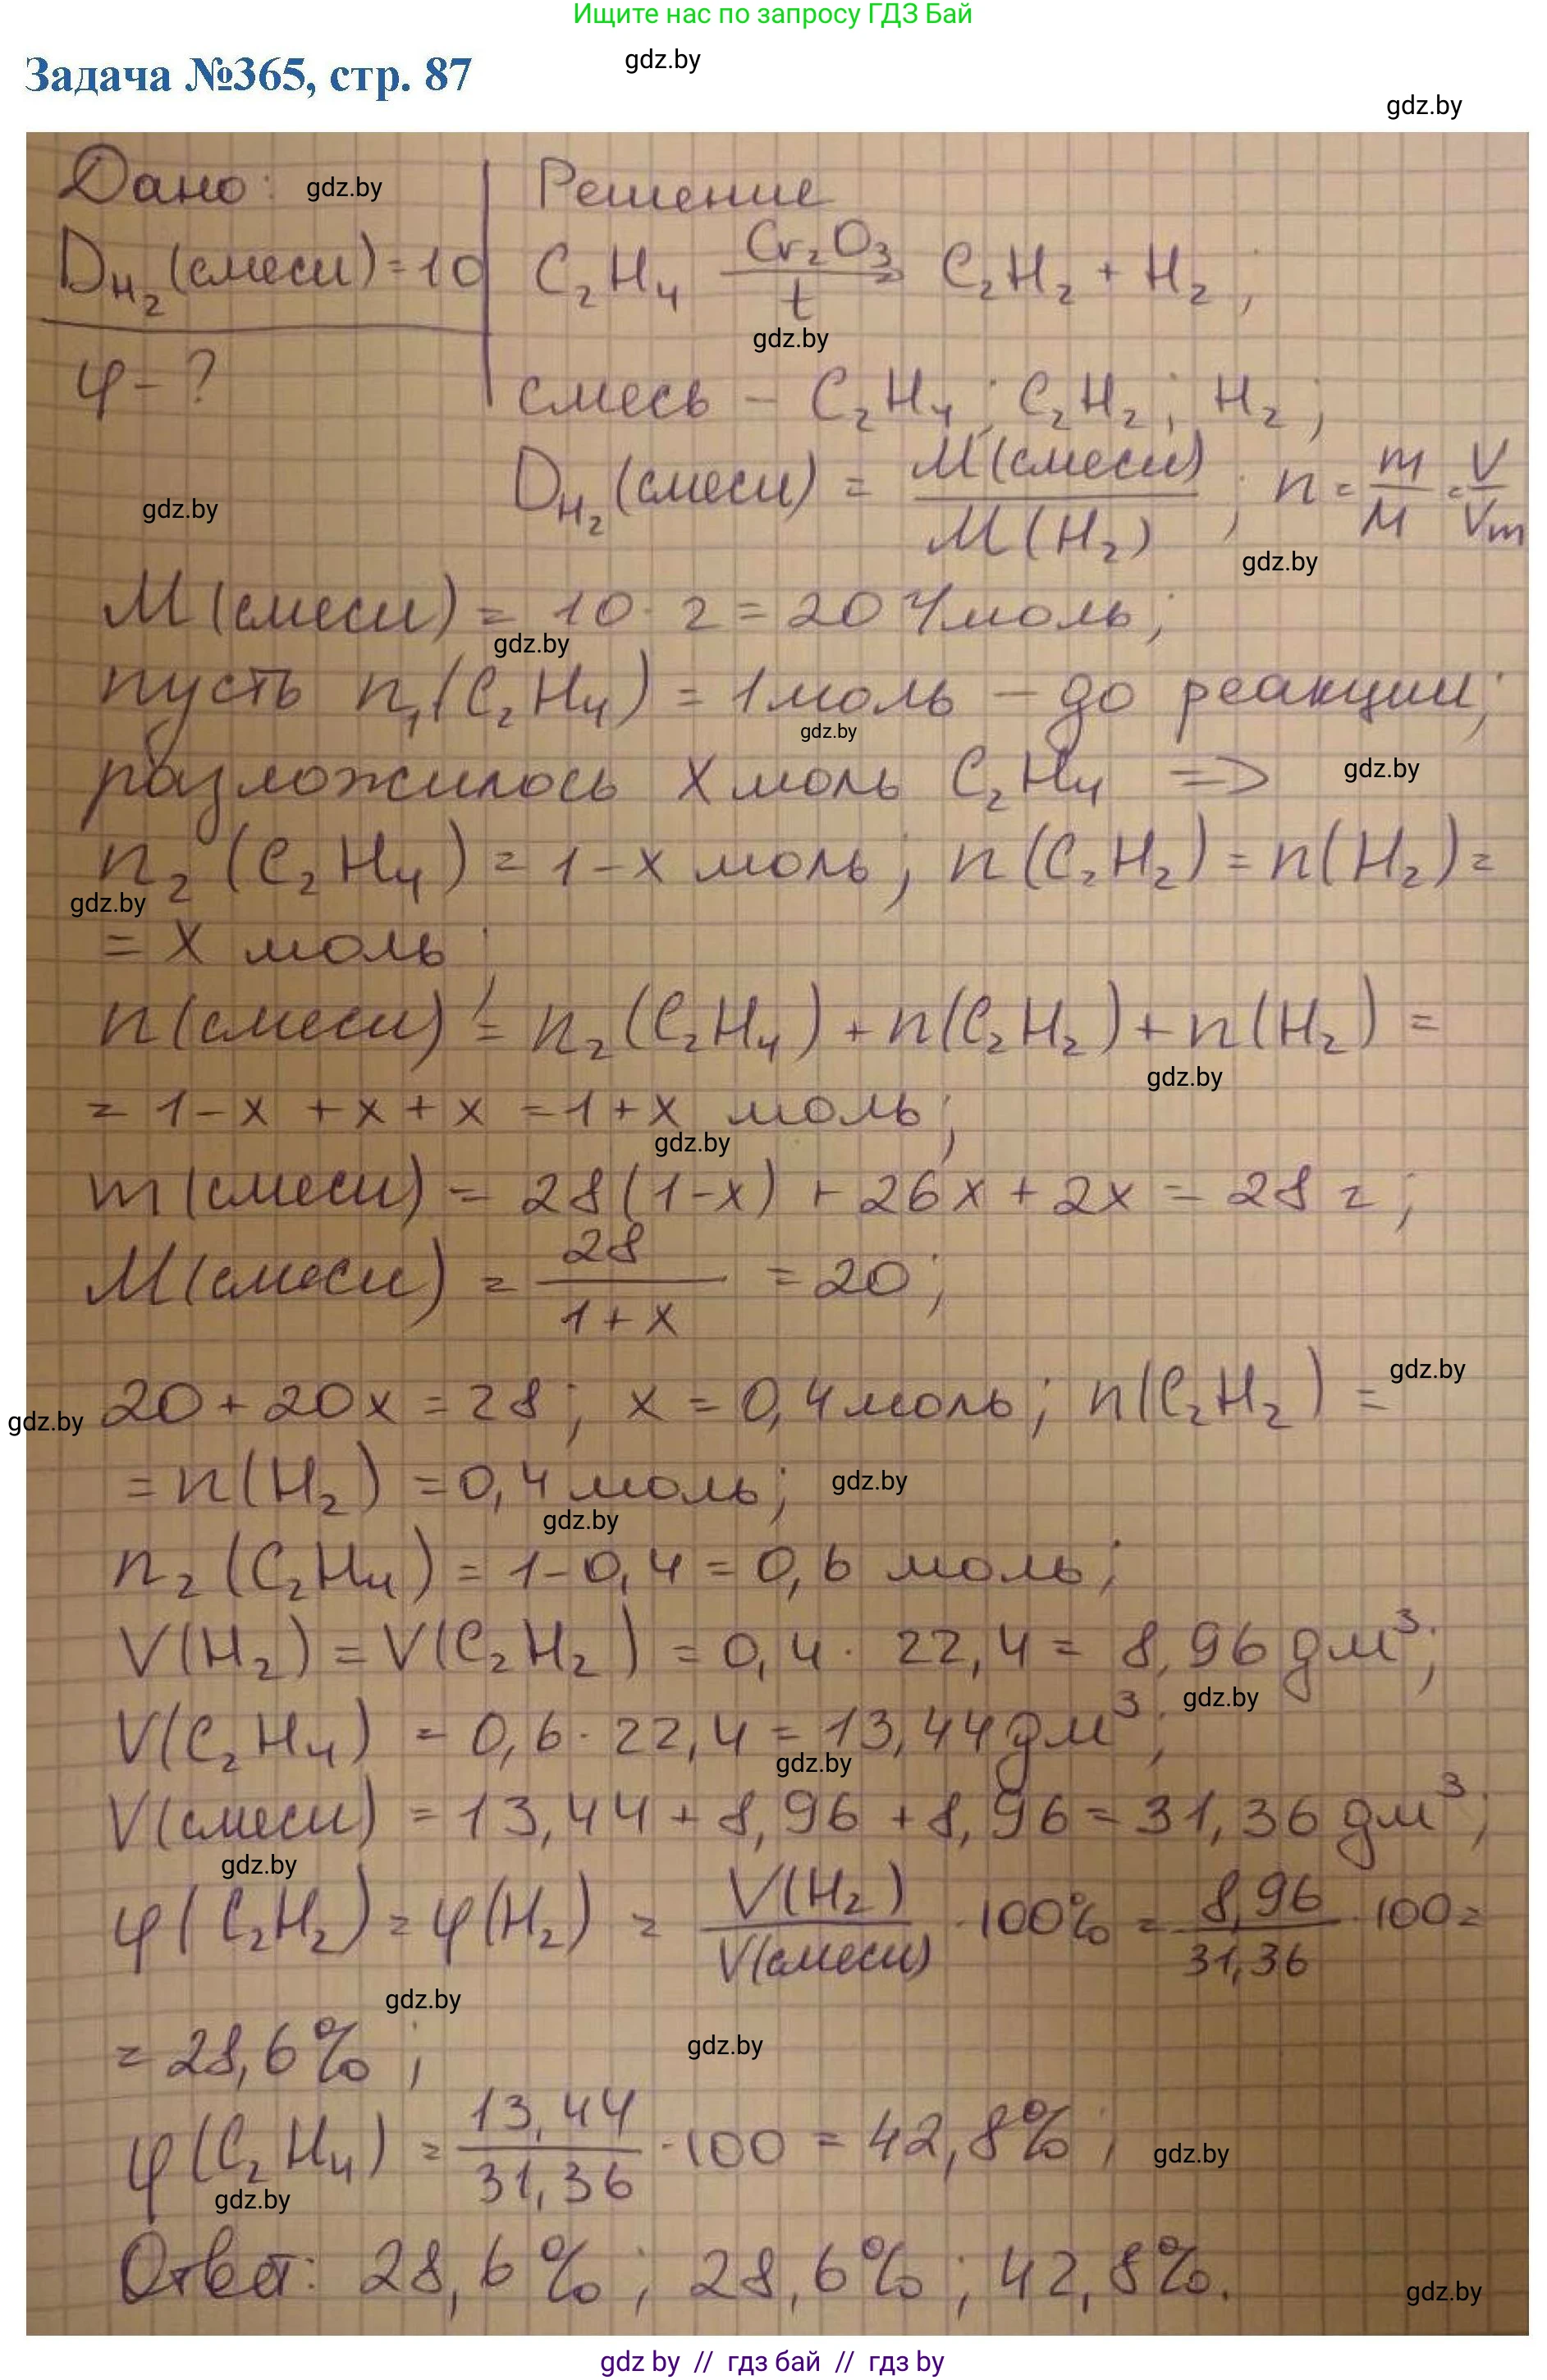 Ищите нас по запросу ГДЗ Бай
gdz.by
Задача №365, стр. 87
gdz.by
Дано: gdz.by Решение
D_H₂(смеси)=10 C₂H₄ Cr₂O₃/t → C₂H₂ + H₂;
gdz.by
φ-? смесь – C₂H₄; C₂H₂; H₂;
gdz.by D_H₂(смеси) = M(смеси)/M(H₂); n = m/M = V/Vm
gdz.by
M(смеси) = 10 · 2 = 20 г/моль;
gdz.by
пусть n₁(C₂H₄) = 1 моль – до реакции;
gdz.by
разложилось x моль C₂H₄ => gdz.by
n₂(C₂H₄) = 1-x моль; n(C₂H₂) = n(H₂) =
gdz.by
= x моль;
n(смеси) = n₂(C₂H₄) + n(C₂H₂) + n(H₂) =
gdz.by
= 1-x + x + x = 1+x моль;
gdz.by
m(смеси) = 28(1-x) + 26x + 2x = 28 г;
M(смеси) = 28/(1+x) = 20;
gdz.by
gdz.by 20+20x = 28; x = 0,4 моль; n(C₂H₂) =
= n(H₂) = 0,4 моль; gdz.by
gdz.by
n₂(C₂H₄) = 1-0,4 = 0,6 моль;
V(H₂) = V(C₂H₂) = 0,4 · 22,4 = 8,96 дм³;
gdz.by
V(C₂H₄) = 0,6 · 22,4 = 13,44 дм³;
gdz.by
V(смеси) = 13,44 + 8,96 + 8,96 = 31,36 дм³;
gdz.by
φ(C₂H₂) = φ(H₂) = V(H₂)/V(смеси) · 100% = 8,96/31,36 · 100 =
gdz.by
= 28,6%; gdz.by
φ(C₂H₄) = 13,44/31,36 · 100 = 42,8%; gdz.by
gdz.by
Ответ: 28,6%; 28,6%; 42,8%.
gdz.by
gdz by // гдз бай // гдз by